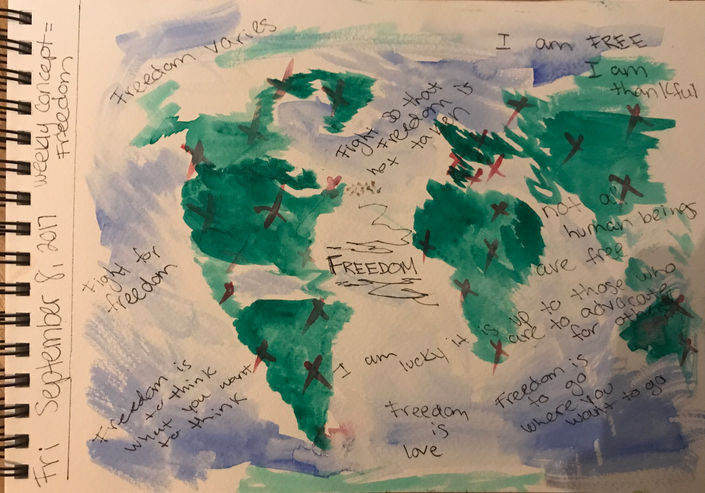 Fri September 8, 2017 weekly concept =
Freedom
Freedom varies
I am FREE
I am
thankful
Fight so that
freedom is
not taken
not all
human beings
are free
Fight for
freedom
FREEDOM
I am lucky it is up to those who
are to advocate
for others
Freedom is
to think
what you want
to think
Freedom
is
love
Freedom is
to go
where you
want to go